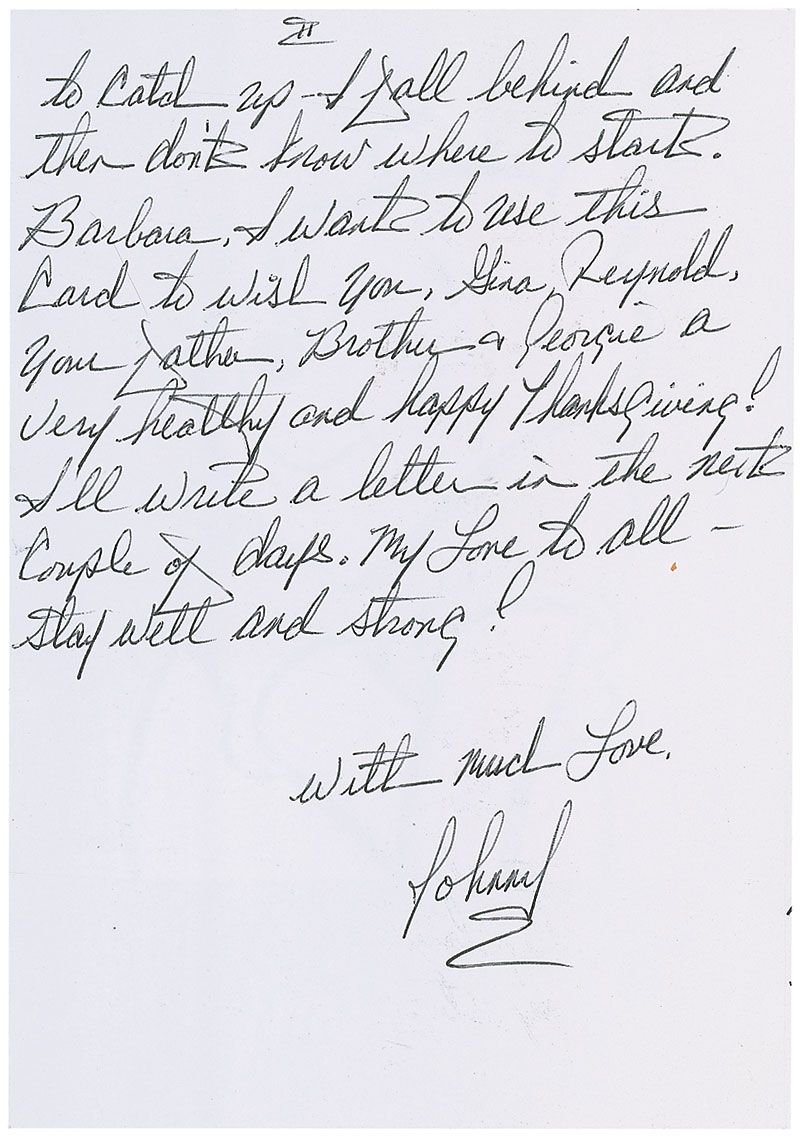 II
to Catch up - I fall behind and
then don't know where to start.
Barbara, I want to use this
Card to wish you, Gina, Reynold,
your father, Brother & Georgie a
very healthy and happy Thanksgiving!
I'll write a letter in the next
Couple of days. My Love to all -
stay well and strong!
With much Love,
Johnny